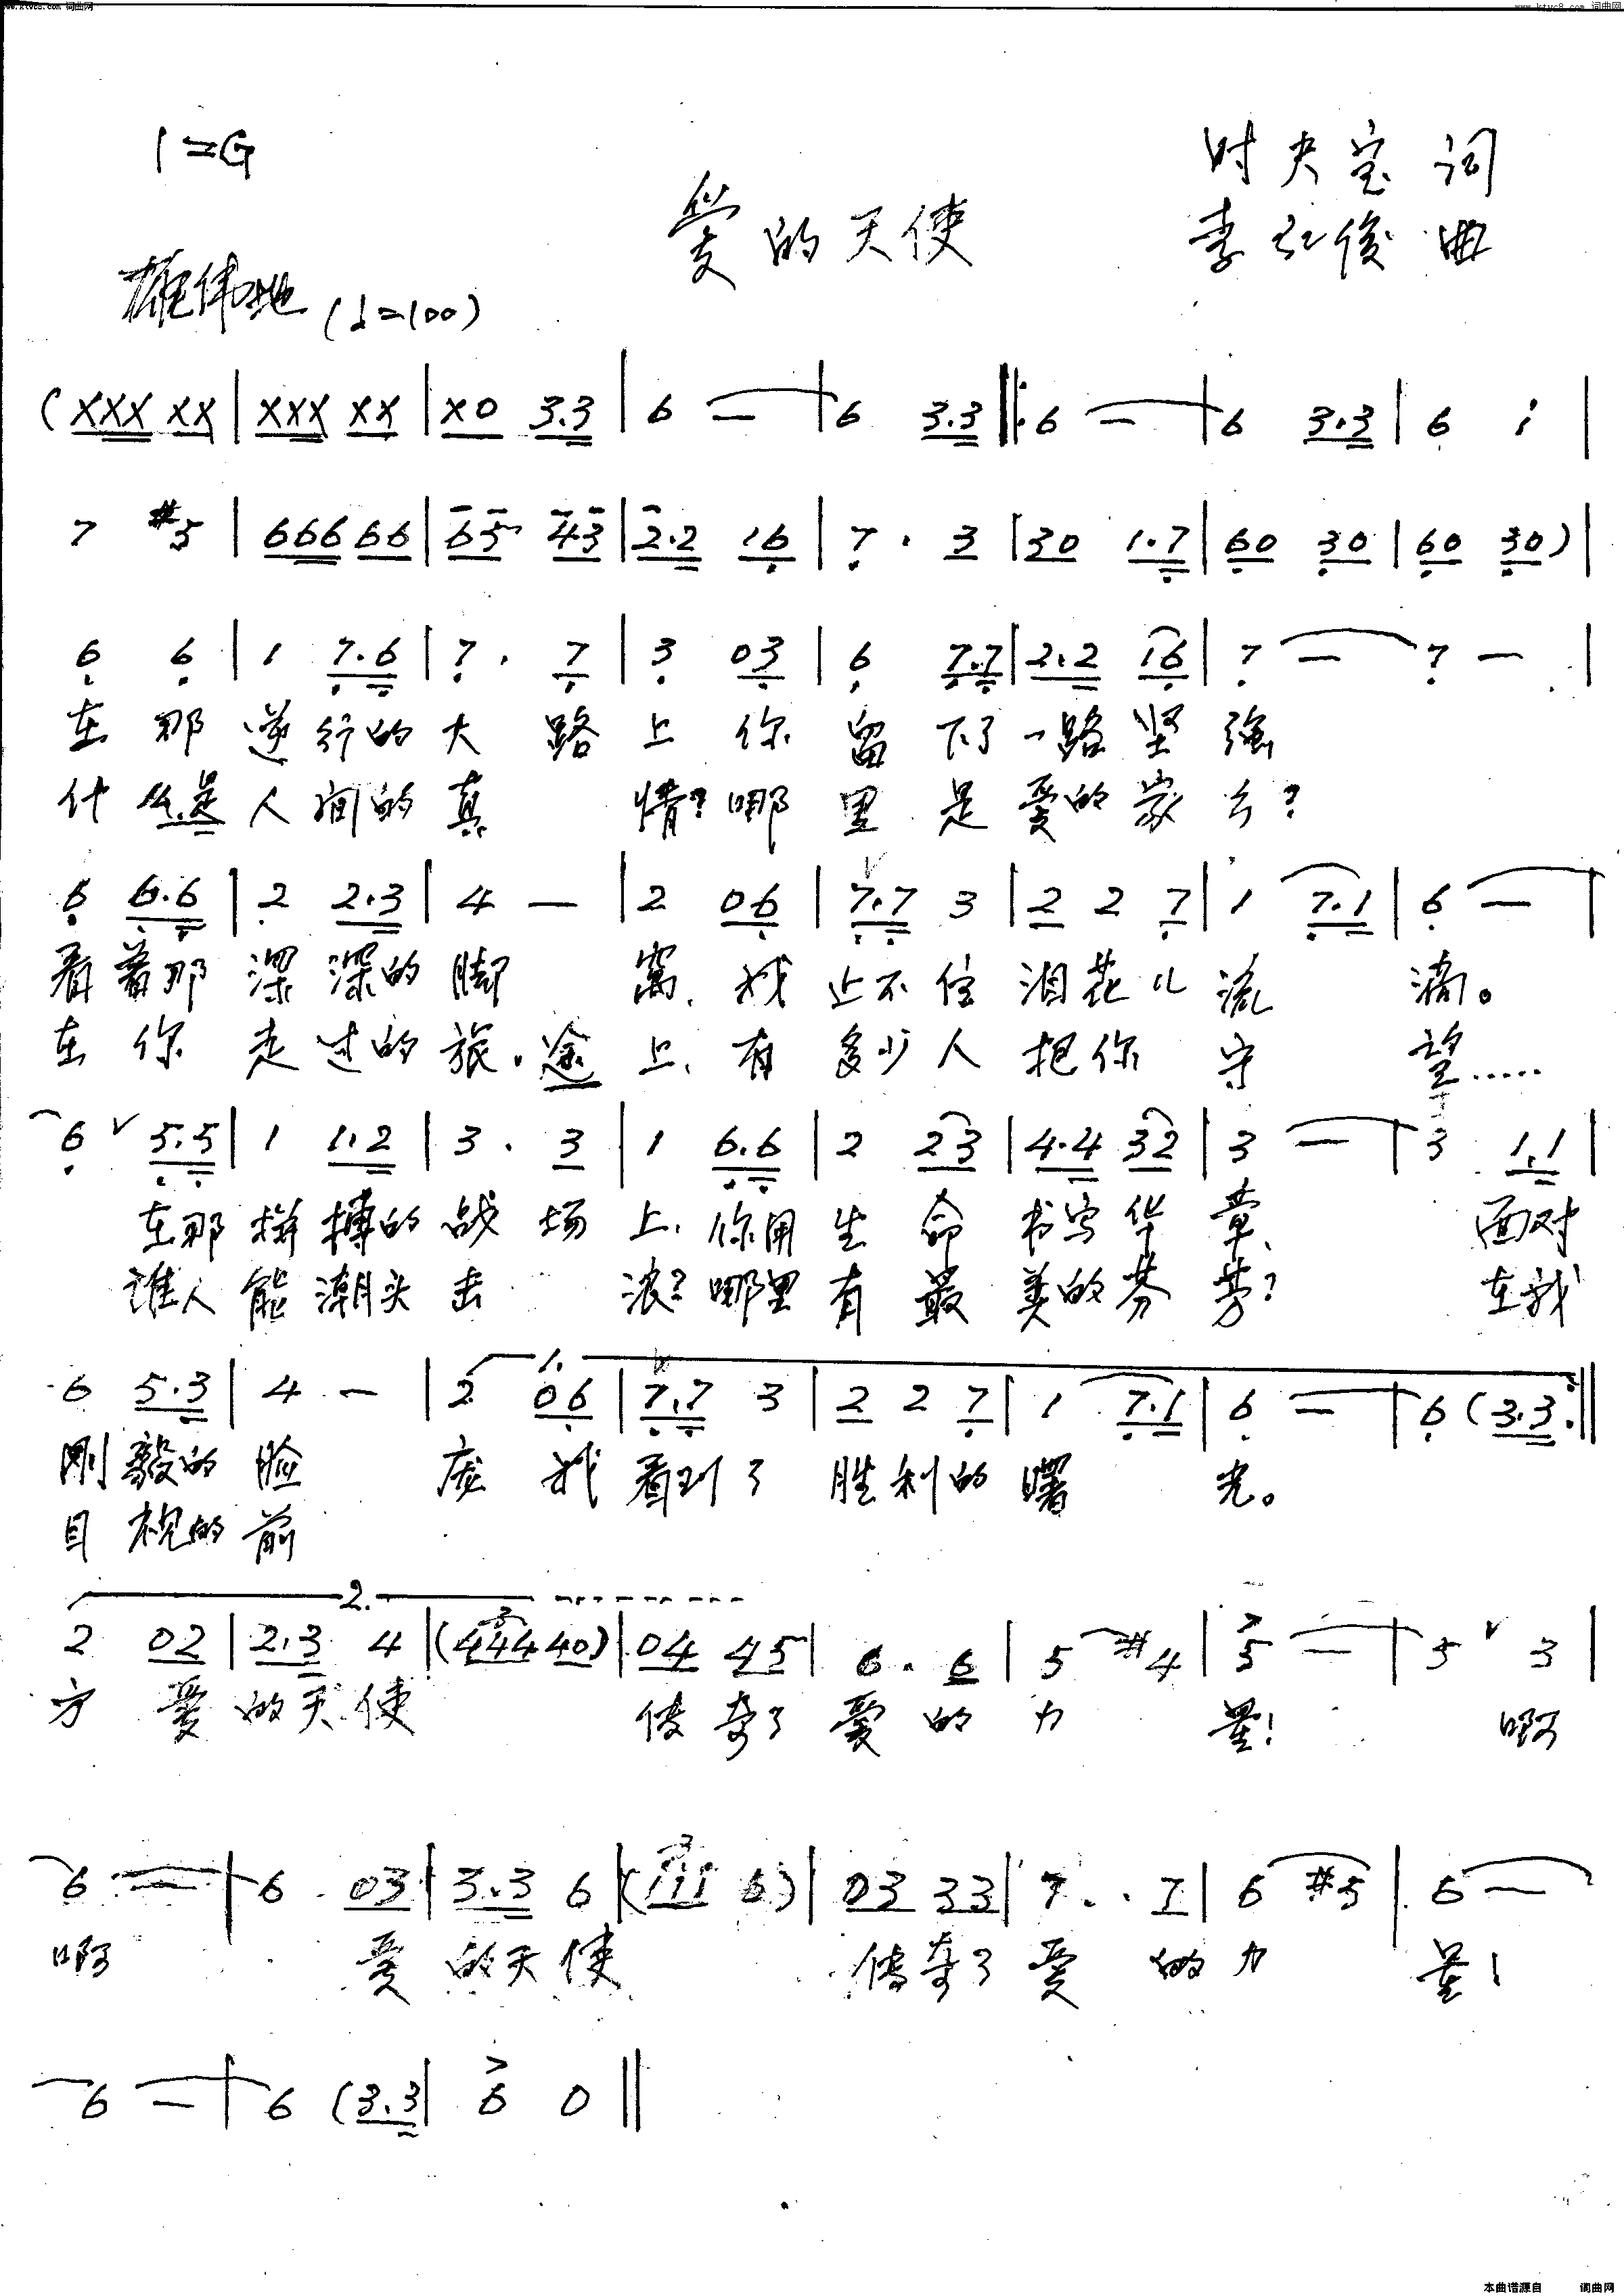 www.ktvc8.com 词曲网
www.ktvc8.com 词曲网
1=G
时央宝 词
爱的天使
李红俊 曲
雄伟地 (♩=100)
(XXX XX | XXX XX | X0 3.3 | 6 — | 6 3.3 ‖: 6 — | 6 3.3 | 6 i |
7 #5 | 666 66 | 65 43 | 2.2 16 | 7. 3 | 30 1.7 | 60 30 | 60 30) |
6 6 | 1 7.6 | 7. 7 | 3 03 | 6 7.7 | 2.2 16 | 7 — | 7 — |
在那逆行的大路上你留下了一路坚强
什么是人间的真情?哪里是爱的家乡?
6 6.6 | 2 2.3 | 4 — | 2 06 | 7.7 3 | 2 2 7 | 1 7.1 | 6 — |
看着那深深的脚窝、我止不住泪花儿流淌。
在你走过的旅途上、有多少人把你守望……
6 ∨ 5.5 | 1 1.2 | 3. 3 | 1 6.6 | 2 23 | 4.4 32 | 3 — | 3 1.1 |
在那拼搏的战场上、你用生命书写华章、面对
谁人能潮头击浪?哪里有最美的芬芳?在我
1.
6 5.3 | 4 — | 2 06 | 7.7 3 | 2 2 7 | 1 7.1 | 6 — | 6 (3.3 :‖
刚毅的脸庞我看到了胜利的曙光。
目视的前
2.
2 02 | 2.3 4 | (444 40) | 04 45 | 6. 6 | 5 #4 | 5 — | 5 ∨ 3 |
方爱的天使传奇了爱的力量!啊
6 — | 6 03 | 3.3 6 | (iii 6) | 03 33 | 7. 7 | 6 #5 | 6 — |
啊爱的天使传奇了爱的力量!
6 — | 6 (3.3 | 6 0 ‖
本曲谱源自 词曲网